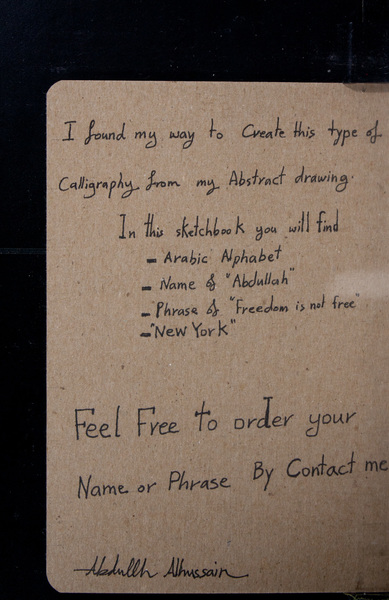 I found my way to Create this type of
Calligraphy from my Abstract drawing.
In this sketchbook you will find
- Arabic Alphabet
- Name of "Abdullah"
- Phrase of "Freedom is not free"
- "New York"
Feel Free to order your
Name or Phrase By Contact me
Abdullh Alhussain